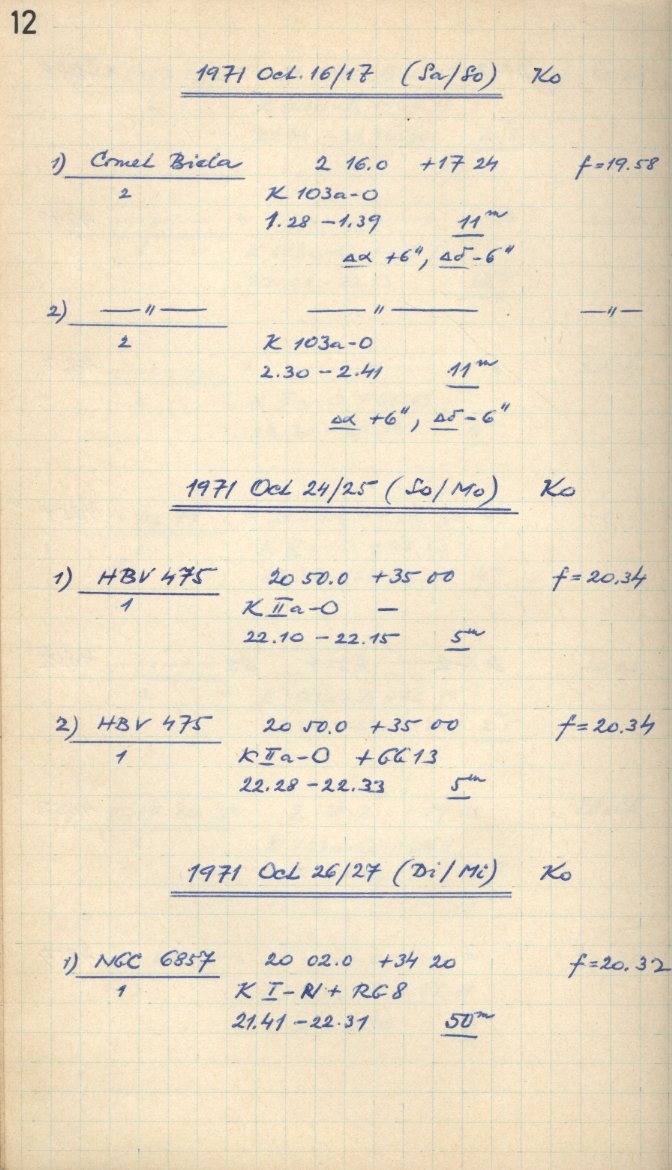 12
1971 Oct. 16/17 (Sa/So) Ko
1) Comet Biela 2 16.0 +17 24 f=19.58
2 K 103a-O
1.28 – 1.39 11ᵐ
Δα +6", Δδ -6"
2) —"— —"— —"—
2 K 103a-O
2.30 – 2.41 11ᵐ
Δα +6", Δδ -6"
1971 Oct 24/25 (So/Mo) Ko
1) HBV 475 20 50.0 +35 00 f=20.34
1 K IIa-O —
22.10 – 22.15 5ᵐ
2) HBV 475 20 50.0 +35 00 f=20.34
1 K IIa-O +GG13
22.28 – 22.33 5ᵐ
1971 Oct 26/27 (Di/Mi) Ko
1) NGC 6857 20 02.0 +34 20 f=20.32
1 K I-N + RG8
21.41 – 22.31 50ᵐ